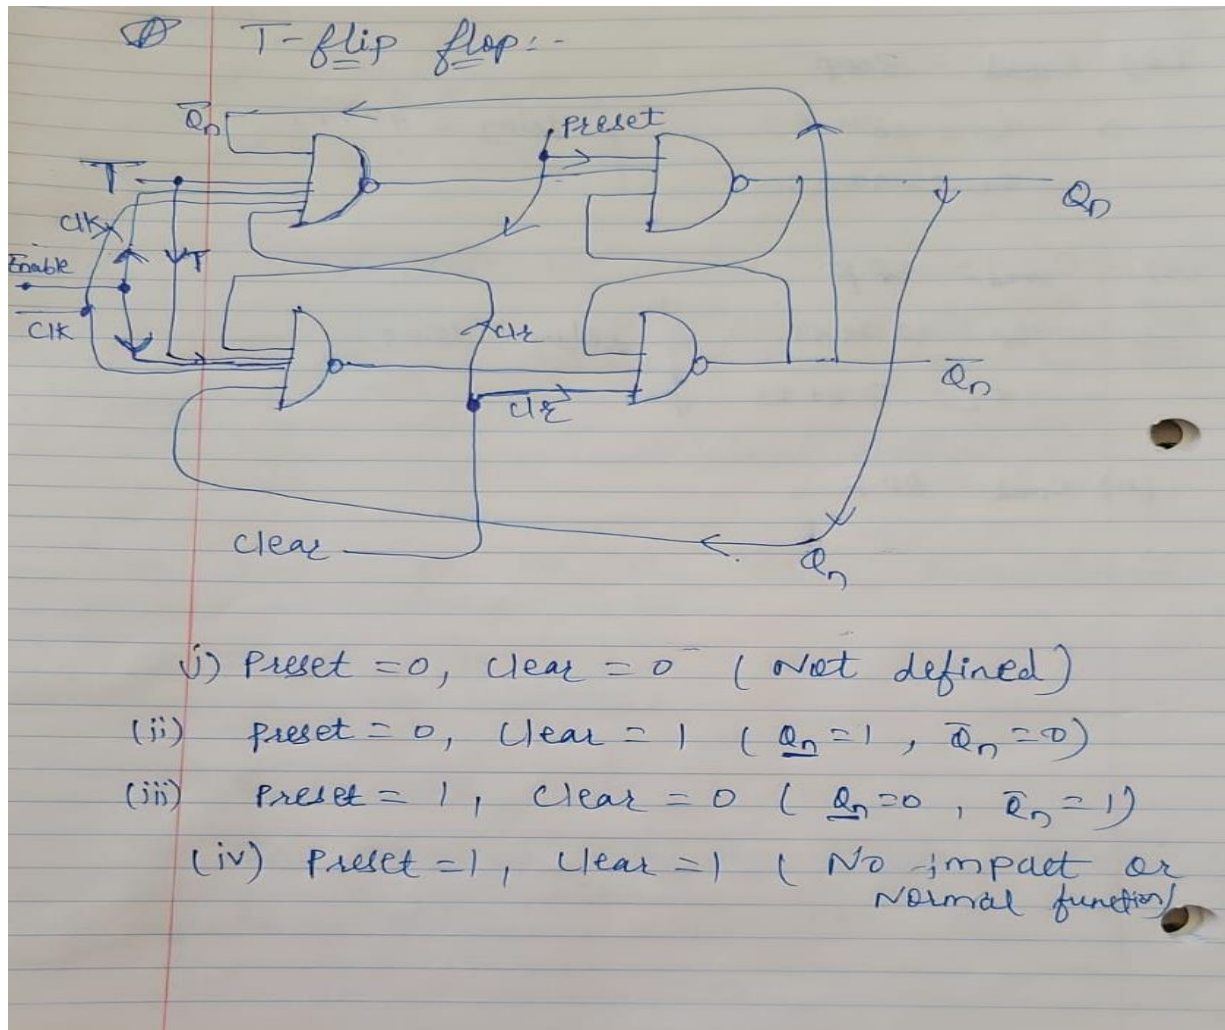 T-flip flop:-
Q̅n
Preset
T
Qn
Clk
T
Enable
Clk
Clr
Q̅n
Clr
Clear
Qn
(i) Preset = 0, Clear = 0 (Not defined)
(ii) Preset = 0, Clear = 1 (Qn = 1, Q̅n = 0)
(iii) Preset = 1, Clear = 0 (Qn = 0, Q̅n = 1)
(iv) Preset = 1, Clear = 1 (No impact or
Normal function)